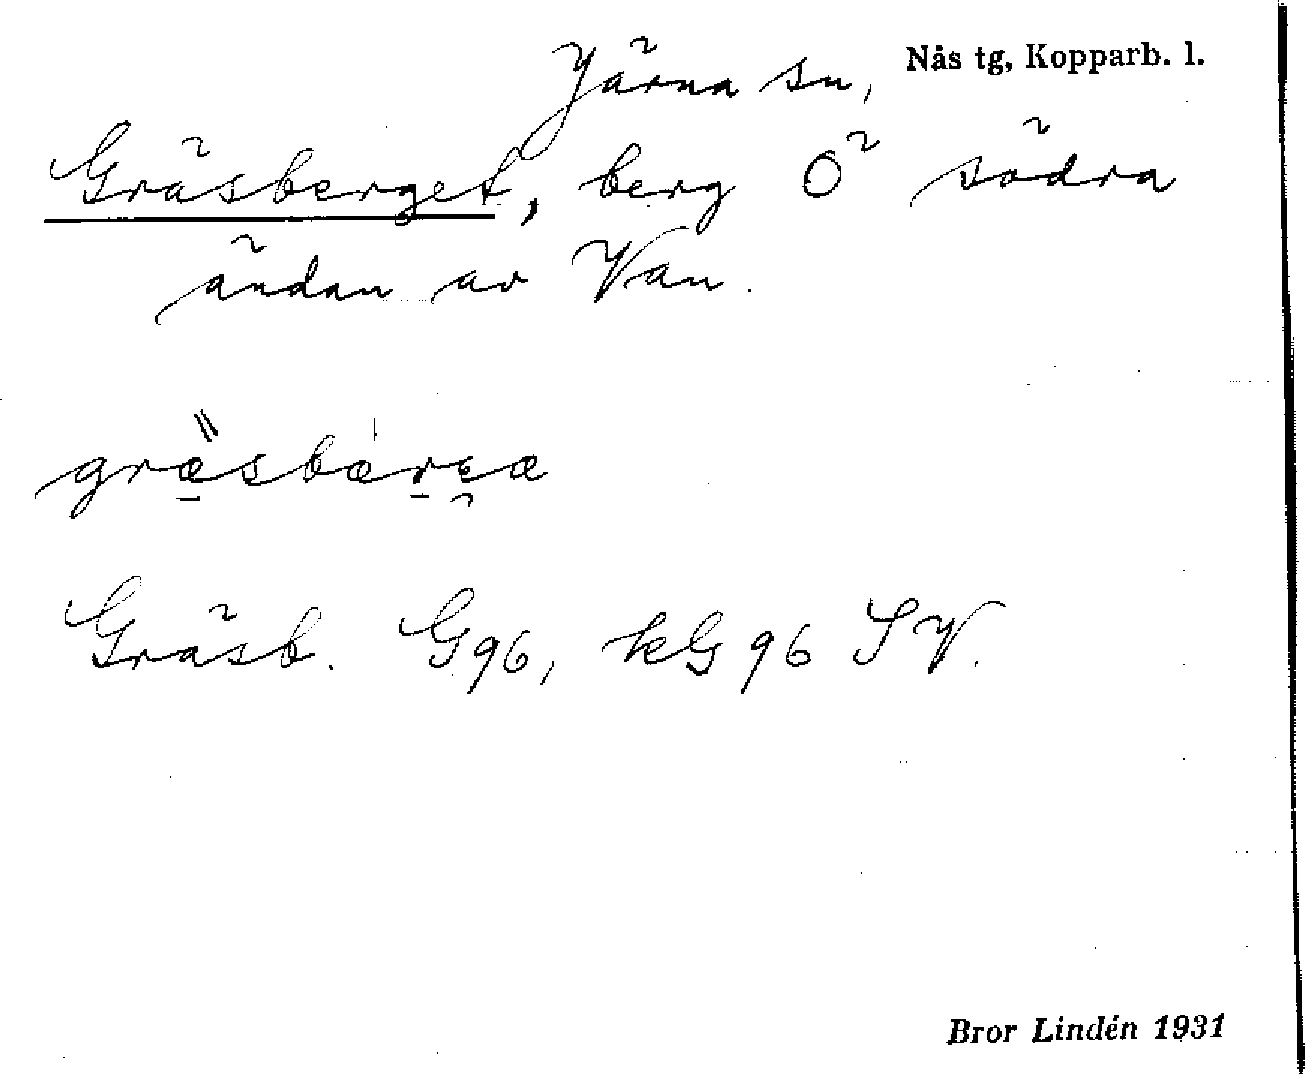 Järna sn, Nås tg, Kopparb. l.
Gräsberget, berg Ö södra
ändan av Van.
græsbærɛæ
Gräsb. G96, kG 96 SV.
Bror Lindén 1931